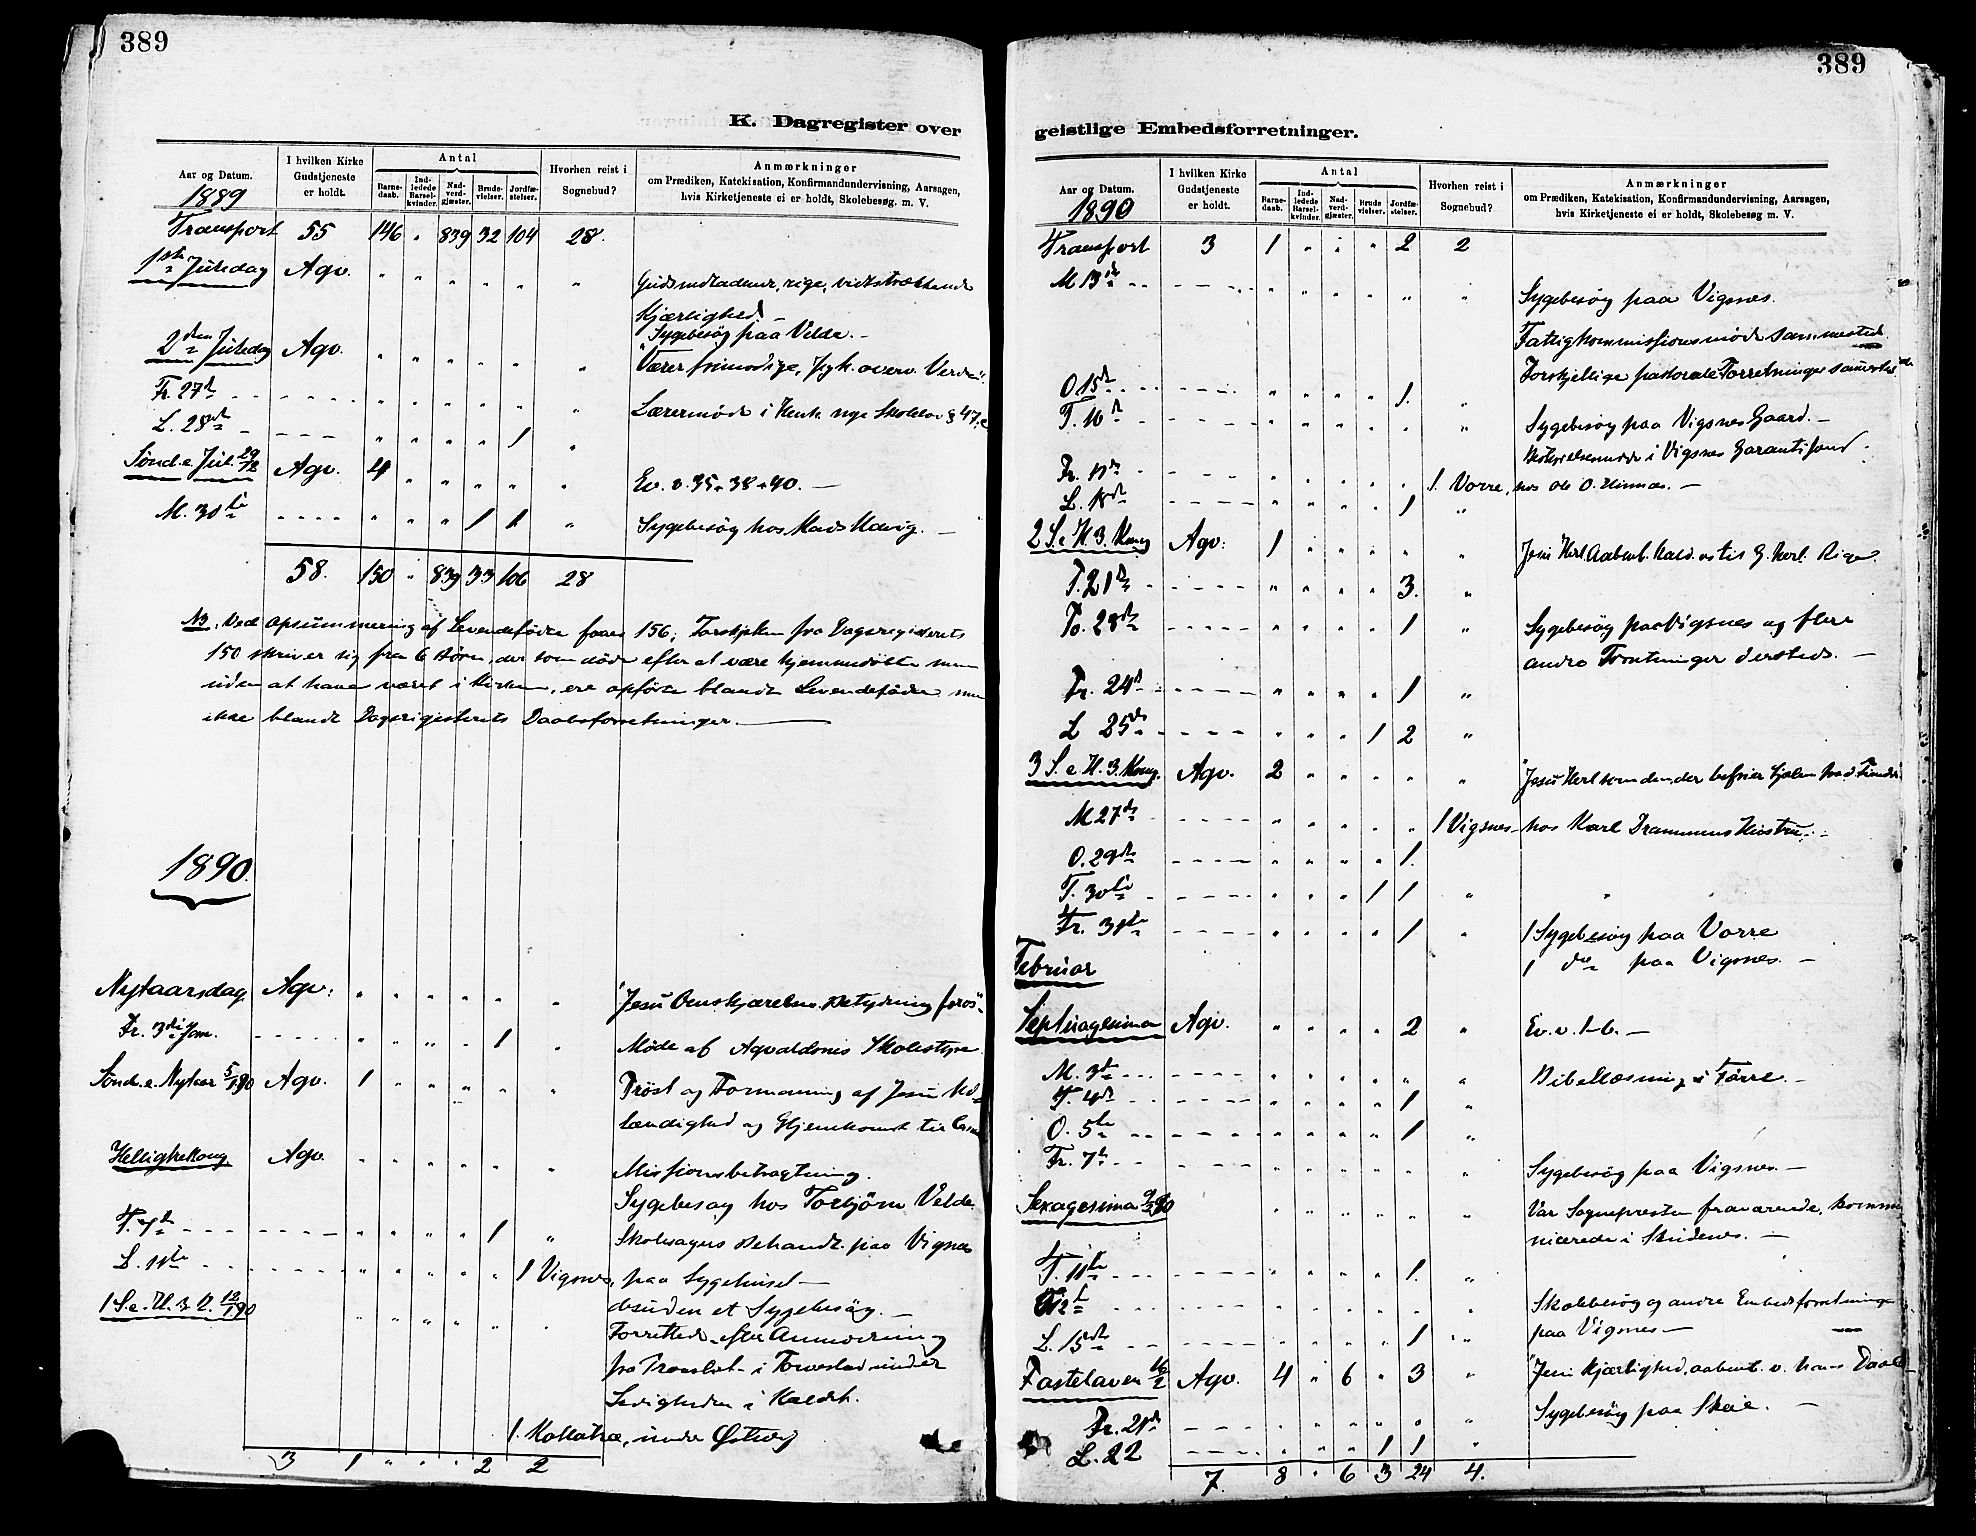 389
K. Dagregister over
Aar og Datum.
1889
I hvilken Kirke Gudstjeneste er holdt.
Antal
Barnedaab.
Indledede Barselkvinder.
Nadverdgjæster.
Brudevielser.
Jordfæstelser.
Hvorhen reist i Sognebud?
Anmærkninger
om Prædiken, Katekisation, Konfirmandundervisning, Aarsagen, hvis Kirketjeneste ei er holdt, Skolebesøg, m. V.
Transport 55 146 " 839 32 104 28.
1ste Juledag Agv. " " " " " "
Kjærlighed –
Sygebesøg paa Velde. –
2den Juledag Agv. " " " " " "
Fr. 27de - - - - " " " " " "
Lærermøde i nye Skolelov § 47
L. 28de - - - - " " " " 1 "
Sønd. e. Jul. 29/12 Agv. 4 " " " " " Ev. v. 35, 38, 40. –
M. 30te - - - - " " " 1 1 " Sygebesøg hos Mads –
58. 150 " 839 33 106 28
NB. Ved opsummering af Levendefødte faaes 156; Forskjellen fra Dagregisterets
150 skriver sig fra 6 Børn, der som døde efter at være hjemmedøbte men
uden at have været i Kirken, ere opførte blandt Levendefødte men
ikke blandt Dagregisterets Daabsforretninger. –
1890.
Nytaarsdag Agv. " " " " " "
Fr. 3die Jan. - - - - " " " " 1 " Møde af Agvaldsnes Skolestyre
Sønd. e. Nytaar 5/1 90 Agv. 1 " " " " " Trøst og Formaning af Jesu
og Hjemkomst til
Helligtrekong. Agv. " " " " " " Missionsbetragtning.
Sygebesøg hos Torbjørn Velde.
T. 7de - - - - " " " " 1 " Skolesagers Behandl. paa Vigsnes
L. 11te - - - - " " " " " 1 Vigsnes, paa Sygehuset –
desuden et Sygebesøg. –
1 S. e. H. 3 K. 12/1 90 " " " " " "
Forrettede efter Anmodning
fra Provsten i Torvestad under
Ledigheden i Kaldet.
1.
3 1 " " " 2 2
389
geistlige Embedsforretninger.
Aar og Datum.
1890
I hvilken Kirke Gudstjeneste er holdt.
Antal
Barnedaab.
Indledede Barselkvinder.
Nadvergjæster.
Brudevielser.
Jordfæstelser.
Hvorhen reist i Sognebud?
Anmærkninger
om Prædiken, Katekisation, Konfirmandundervisning, Aarsagen, hvis Kirketjeneste ei er holdt, Skolebesøg m. V.
Transport 3 1 " " " 2 2
M 13de - - - - " " " " " " Sygebesøg paa Vigsnes.
Fattigkommissionsmøde sammesteds
Forskjellige pastorale Forretninger sammesteds
O 15de - - - - " " " " 1. "
T. 16de - - - - " " " " " " Sygebesøg paa Vigsnes Gaard. –
i Vigsnes Garantifond.
Fr. 17de - - - - " " " " " 1. Vorre, hos Ole O. –
L. 18de - - - - " " " " 1 "
2 S. e. H. 3. Kong Agv. 1 " " " " "
T. 21de - - - - " " " " 3. "
To. 23de - - - - " " " " 1 " Sygebesøg paa Vigsnes og flere
andre Forretninger dersteds. –
Fr. 24de - - - - " " " " 1 "
L 25de - - - - " " " 1 2 "
3 S. e. H. 3. Kong. Agv. 2 " " " " "
M 27de - - - - " " " " " 1 Vigsnes – hos Karl
O. 29de - - - - " " " " 1.
T. 30te - - - - " " " 1 1 "
Fr. 31te " " " " 1 " 1 Sygebesøg paa Vorre
1 do paa Vigsnes. –
Februar
Septuagesima Agv. " " " " 2 " Ev. v. 1–6. –
M. 3die - - - - " " " " " " Bibellæsning i Førre. –
T. 4de - - - - " " " " 1 "
O. 5te - - - - " " " " 1 "
Fr. 7de - - - - " " " " " " Sygebesøg paa Vigsnes. –
Sexagesima 9/2 90 " " " " " " Var Sognepresten fraværende,
i Skudenes. –
T. 11te - - - - " " " " 1. "
12te - - - - " " " " " " Skolebesøg og andre Embedsforretninger
paa Vigsnes –
L. 15de - - - - " " " " 1 "
Fastelaven 16/2 Agv. 4 " 6 " 3 " "Jesu Kjærlighed, aabenb. v. hans Daab
Sygebesøg paa Skeie. –
Fr. 21de - - - - " " " " " "
L. 22 - - - - " " " 1 1 "
7. 8 " 6 3 24 4.